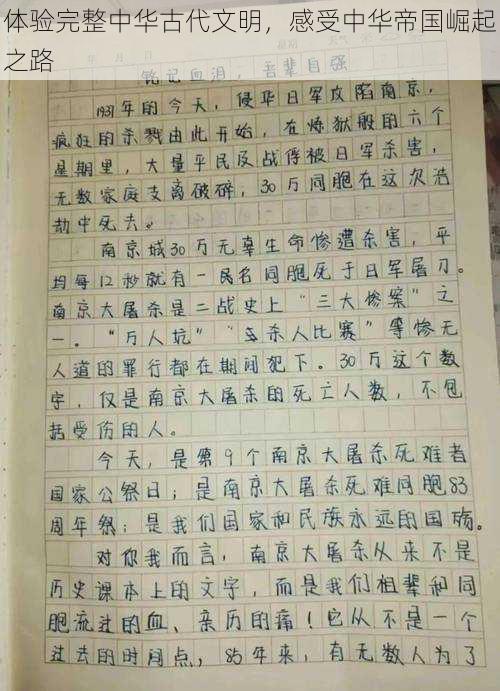 体验完整中华古代文明，感受中华帝国崛起
之路
年 月 日 星期 天气
铭记血泪，吾辈自强
1937年的今天，侵华日军攻陷南京，
疯狂的杀戮由此开始，在炼狱般的六个
星期里，大量平民及战俘被日军杀害，
无数家庭支离破碎，30万同胞在这次浩
劫中死去。
南京城30万无辜生命惨遭杀害，平
均每12秒就有一民名同胞死于日军屠刀。
南京大屠杀是二战史上“三大惨案”之
一。“万人坑”“杀人比赛”等惨无
人道的罪行都在期间犯下。30万这个数
字，仅是南京大屠杀的死亡人数，不包
括受伤的人。
今天，是第9个南京大屠杀死难者
国家公祭日；是南京大屠杀死难同胞83
周年祭；是我们国家和民族永远的国殇。
对你我而言，南京大屠杀从来不是
历史课本上的文字，而是我们祖辈和同
胞流过的血、亲历的痛！它从不是一个
过去的时间点，85年来，有无数人为了